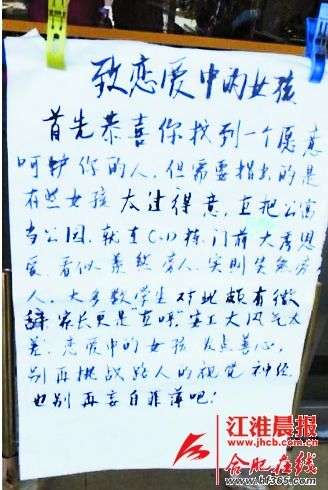 致恋爱中的女孩
首先恭喜你找到一个愿意
呵护你的人,但需要指出的是
有些女孩太过得意,直把公寓
当公园,就在C(1)栋门前大秀恩
爱,看似亲热旁人,实则失熟旁
人,大多数学生对此颇有微
辞,家长更是"直呼"安工大风气太
差,恋爱中的女孩发点善心,
别再挑战路人的视觉神经
也别再妄自菲薄吧!
江淮晨报
www.jhcb.com.cn
合肥在线
www.hf365.com